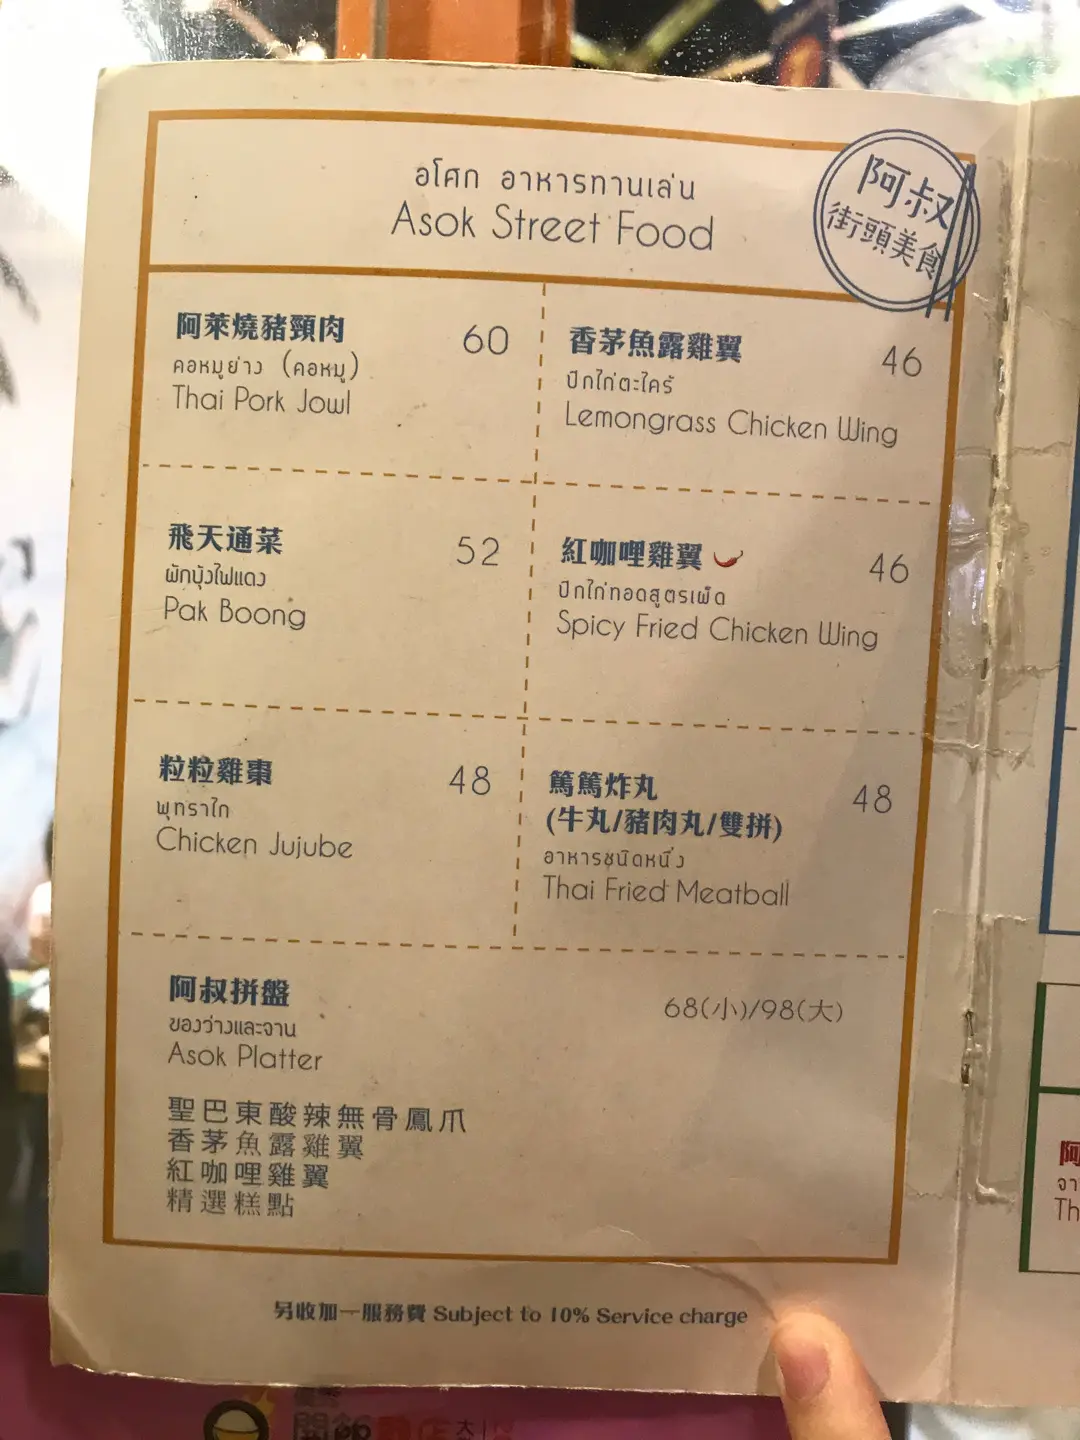 อโศก อาหารทานเล่น
Asok Street Food
阿叔
街頭美食
阿萊燒豬頸肉 60
คอหมูย่าง (คอหมู)
Thai Pork Jowl
香茅魚露雞翼 46
ปีกไก่ตะไคร้
Lemongrass Chicken Wing
飛天通菜 52
ผักบุ้งไฟแดง
Pak Boong
紅咖哩雞翼 46
ปีกไก่ทอดสูตรเผ็ด
Spicy Fried Chicken Wing
粒粒雞棗 48
พุทราไก
Chicken Jujube
篤篤炸丸 48
(牛丸/豬肉丸/雙拼)
อาหารชนิดหนึ่ง
Thai Fried Meatball
阿叔拼盤 68(小)/98(大)
ของว่างและจาน
Asok Platter
聖巴東酸辣無骨鳳爪
香茅魚露雞翼
紅咖哩雞翼
精選糕點
另收加一服務費 Subject to 10% Service charge
阿
จา
Th